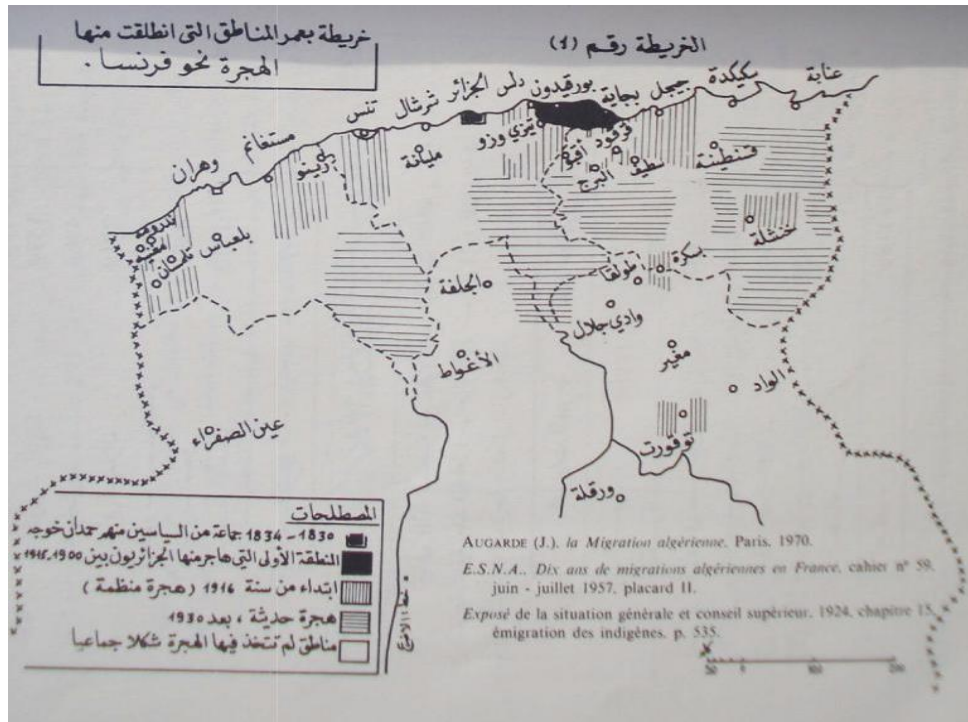 خريطة بعمر المناطق التي انطلقت منها
الهجرة نحو فرنسا.
الخريطة رقم (1)
عنابة
سكيكدة
جيجل
بجاية
بورقيدون
دلس
الجزائر
شرشال
تنس
مستغانم
وهران
تيزي وزو
قرقود
أقبو
سطيف
البرج
قسنطينة
مليانة
رينو
ندرومة
مغنية
تلمسان
بلعباس
خنشلة
بسكرة
طولقا
الجلفة
وادي جلال
مغير
الأغواط
الواد
عين الصفراء
توقورت
ورقلة
المصطلحات
1830 - 1834 جماعة من السياسين منهم حمدان خوجه
المنطقة الأولى التي هاجر منها الجزائريون بين 1900-1915
ابتداء من سنة 1916 (هجرة منظمة)
هجرة حديثة، بعد 1930
مناطق لم تتخذ فيها الهجرة شكلا جماعيا
AUGARDE (J.). la Migration algérienne. Paris. 1970.
E.S.N.A.. Dix ans de migrations algériennes en France. cahier n° 59.
juin - juillet 1957. placard II.
Exposé de la situation générale et conseil supérieur. 1924. chapitre 15.
émigration des indigènes. p. 535.
50 0 100 200